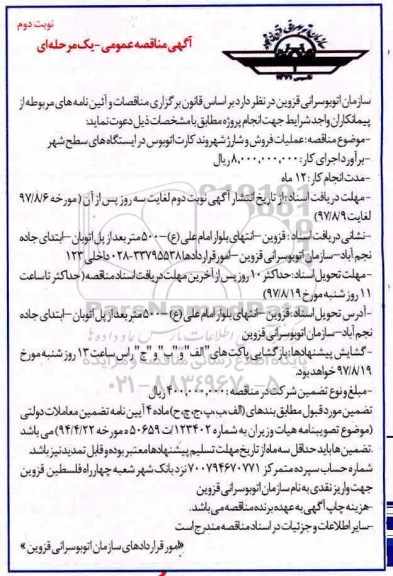 نوبت دوم
آگهی مناقصه عمومی - یک مرحله‌ای
سازمان اتوبوسرانی قزوین در نظر دارد بر اساس قانون برگزاری مناقصات و آئین نامه های مربوطه از
پیمانکاران واجد شرایط جهت انجام پروژه مطابق با مشخصات ذیل دعوت نماید:
-موضوع مناقصه: عملیات فروش و شارژ شهروند کارت اتوبوس در ایستگاه های سطح شهر
-برآورد اجرای کار: ۸,۰۰۰,۰۰۰,۰۰۰ ریال
-مدت انجام کار: ۱۲ ماه
-مهلت دریافت اسناد: از تاریخ انتشار آگهی نوبت دوم لغایت سه روز پس از آن (مورخه ۹۷/۸/۶
لغایت ۹۷/۸/۹)
-نشانی دریافت اسناد: قزوین - انتهای بلوار امام علی (ع) - ۵۰۰ متر بعد از پل اتوبان - ابتدای جاده
نجم آباد - سازمان اتوبوسرانی قزوین - امور قراردادها ۳۳۷۹۵۵۳۸-۰۲۸ داخلی ۱۲۳
-مهلت تحویل اسناد: حداکثر ۱۰ روز پس از آخرین مهلت دریافت اسناد مناقصه (حداکثر تا ساعت
۱۱ روز شنبه مورخ ۹۷/۸/۱۹)
-آدرس تحویل اسناد: قزوین - انتهای بلوار امام علی (ع) - ۵۰۰ متر بعد از پل اتوبان - ابتدای جاده
نجم آباد - سازمان اتوبوسرانی قزوین
-گشایش پیشنهادها: بازگشایی پاکت های "الف" و "ب" و "ج" راس ساعت ۱۳ روز شنبه مورخ
۹۷/۸/۱۹ خواهد بود.
-مبلغ و نوع تضمین شرکت در مناقصه: ۴۰۰,۰۰۰,۰۰۰ ریال
تضمین مورد قبول مطابق بندهای (الف، ب، پ، ج، چ، ح) ماده ۴ آیین نامه تضمین معاملات دولتی
(موضوع تصویبنامه هیات وزیران به شماره ۱۲۳۴۰۲/ت ۵۰۶۵۹ ه مورخه ۹۴/۴/۲۲) می باشد
.تضمین ها باید حداقل سه ماه از تاریخ مهلت تسلیم پیشنهادها معتبر بوده و قابل تمدید نیز باشد
شماره حساب سپرده متمرکز ۷۰۰۷۹۴۶۷۰۷۷۱ نزد بانک شهر شعبه چهارراه فلسطین قزوین
جهت واریز نقدی به نام سازمان اتوبوسرانی قزوین
-هزینه چاپ آگهی به عهده برنده مناقصه می باشد.
-سایر اطلاعات و جزئیات در اسناد مناقصه مندرج است
«امور قراردادهای سازمان اتوبوسرانی قزوین»